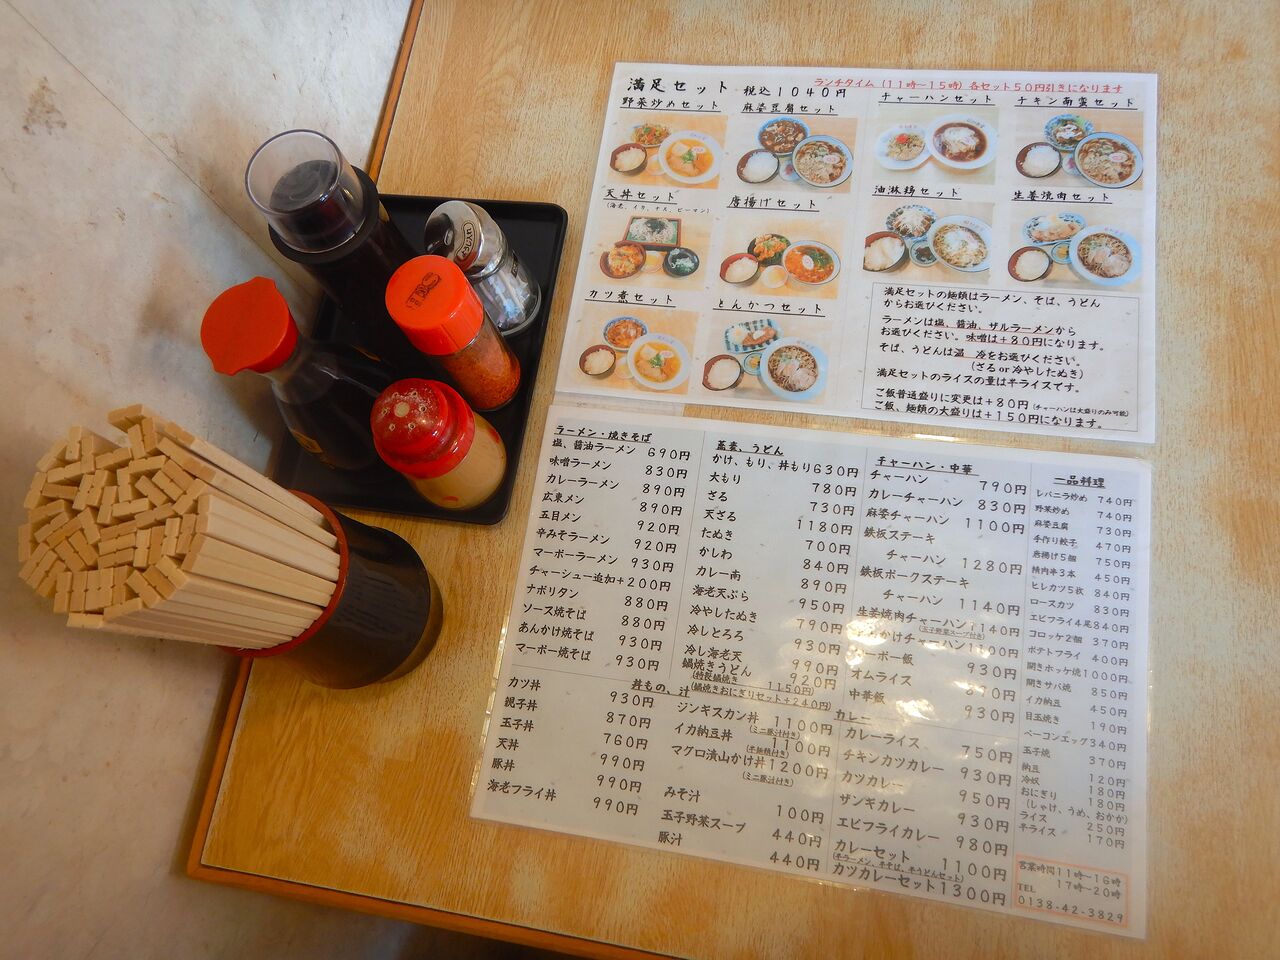 満足セット 税込1040円
ランチタイム(11時～15時)各セット50円引きになります
野菜炒めセット
麻婆豆腐セット
チャーハンセット
チキン南蛮セット
天丼セット
(海老、イカ、ナス、ピーマン)
唐揚げセット
油淋鶏セット
生姜焼肉セット
カツ煮セット
とんかつセット
満足セットの麺類はラーメン、そば、うどん
からお選びください。
ラーメンは塩、醤油、ザルラーメンから
お選びください。味噌は+80円になります。
そば、うどんは温 冷をお選びください。
(ざる or 冷やしたぬき)
満足セットのライスの量は半ライスです。
ご飯普通盛りに変更は+80円(チャーハンは大盛りのみ可能)
ご飯、麺類の大盛りは+150円になります。
ラーメン・焼きそば
塩、醤油ラーメン 690円
味噌ラーメン 830円
カレーラーメン 890円
広東メン 890円
五目メン 920円
辛みそラーメン 920円
マーボーラーメン 930円
チャーシュー追加+200円
ナポリタン 880円
ソース焼そば 880円
あんかけ焼そば 930円
マーボー焼そば 930円
蕎麦、うどん
かけ、もり、丼もり630円
大もり 780円
ざる 730円
天ざる 1180円
たぬき 700円
かしわ 840円
カレー南 890円
海老天ぷら 950円
冷やしたぬき 790円
冷しとろろ 930円
冷し海老天 990円
鍋焼きうどん 920円
(特製鍋焼き 1150円)
(鍋焼きおにぎりセット+240円)
チャーハン・中華
チャーハン 790円
カレーチャーハン 830円
麻婆チャーハン 1100円
鉄板ステーキ
チャーハン 1280円
鉄板ポークステーキ
チャーハン 1140円
生姜焼肉チャーハン1140円
(玉子野菜スープ付き)
かけチャーハン1100円
ーボー飯 930円
オムライス
中華飯 930円
一品料理
レバニラ炒め 740円
野菜炒め 740円
麻婆豆腐 730円
手作り餃子 470円
唐揚げ5個 750円
精肉串3本 450円
ヒレカツ5枚 840円
ロースカツ 830円
エビフライ4尾840円
コロッケ2個 370円
ポテトフライ 400円
開きホッケ焼1000円
開きサバ焼 850円
イカ納豆 450円
目玉焼き 190円
ベーコンエッグ340円
玉子焼 370円
納豆 120円
冷奴 180円
おにぎり 180円
(しゃけ、うめ、おかか)
ライス 250円
半ライス 170円
丼もの、汁
カツ丼 930円
親子丼 870円
玉子丼 760円
天丼 990円
豚丼 990円
海老フライ丼 990円
ジンギスカン丼 1100円
(ミニ豚汁付き)
イカ納豆丼 1100円
(半麺類付き)
マグロ漬山かけ丼1200円
(ミニ豚汁付き)
みそ汁 100円
玉子野菜スープ 440円
豚汁 440円
カレー
カレーライス 750円
チキンカツカレー 930円
カツカレー 950円
ザンギカレー 930円
エビフライカレー 980円
カレーセット 1100円
(半ラーメン、半そば、半うどんセット)
カツカレーセット1300円
営業時間11時～16時
17時～20時
TEL
0138-42-3829